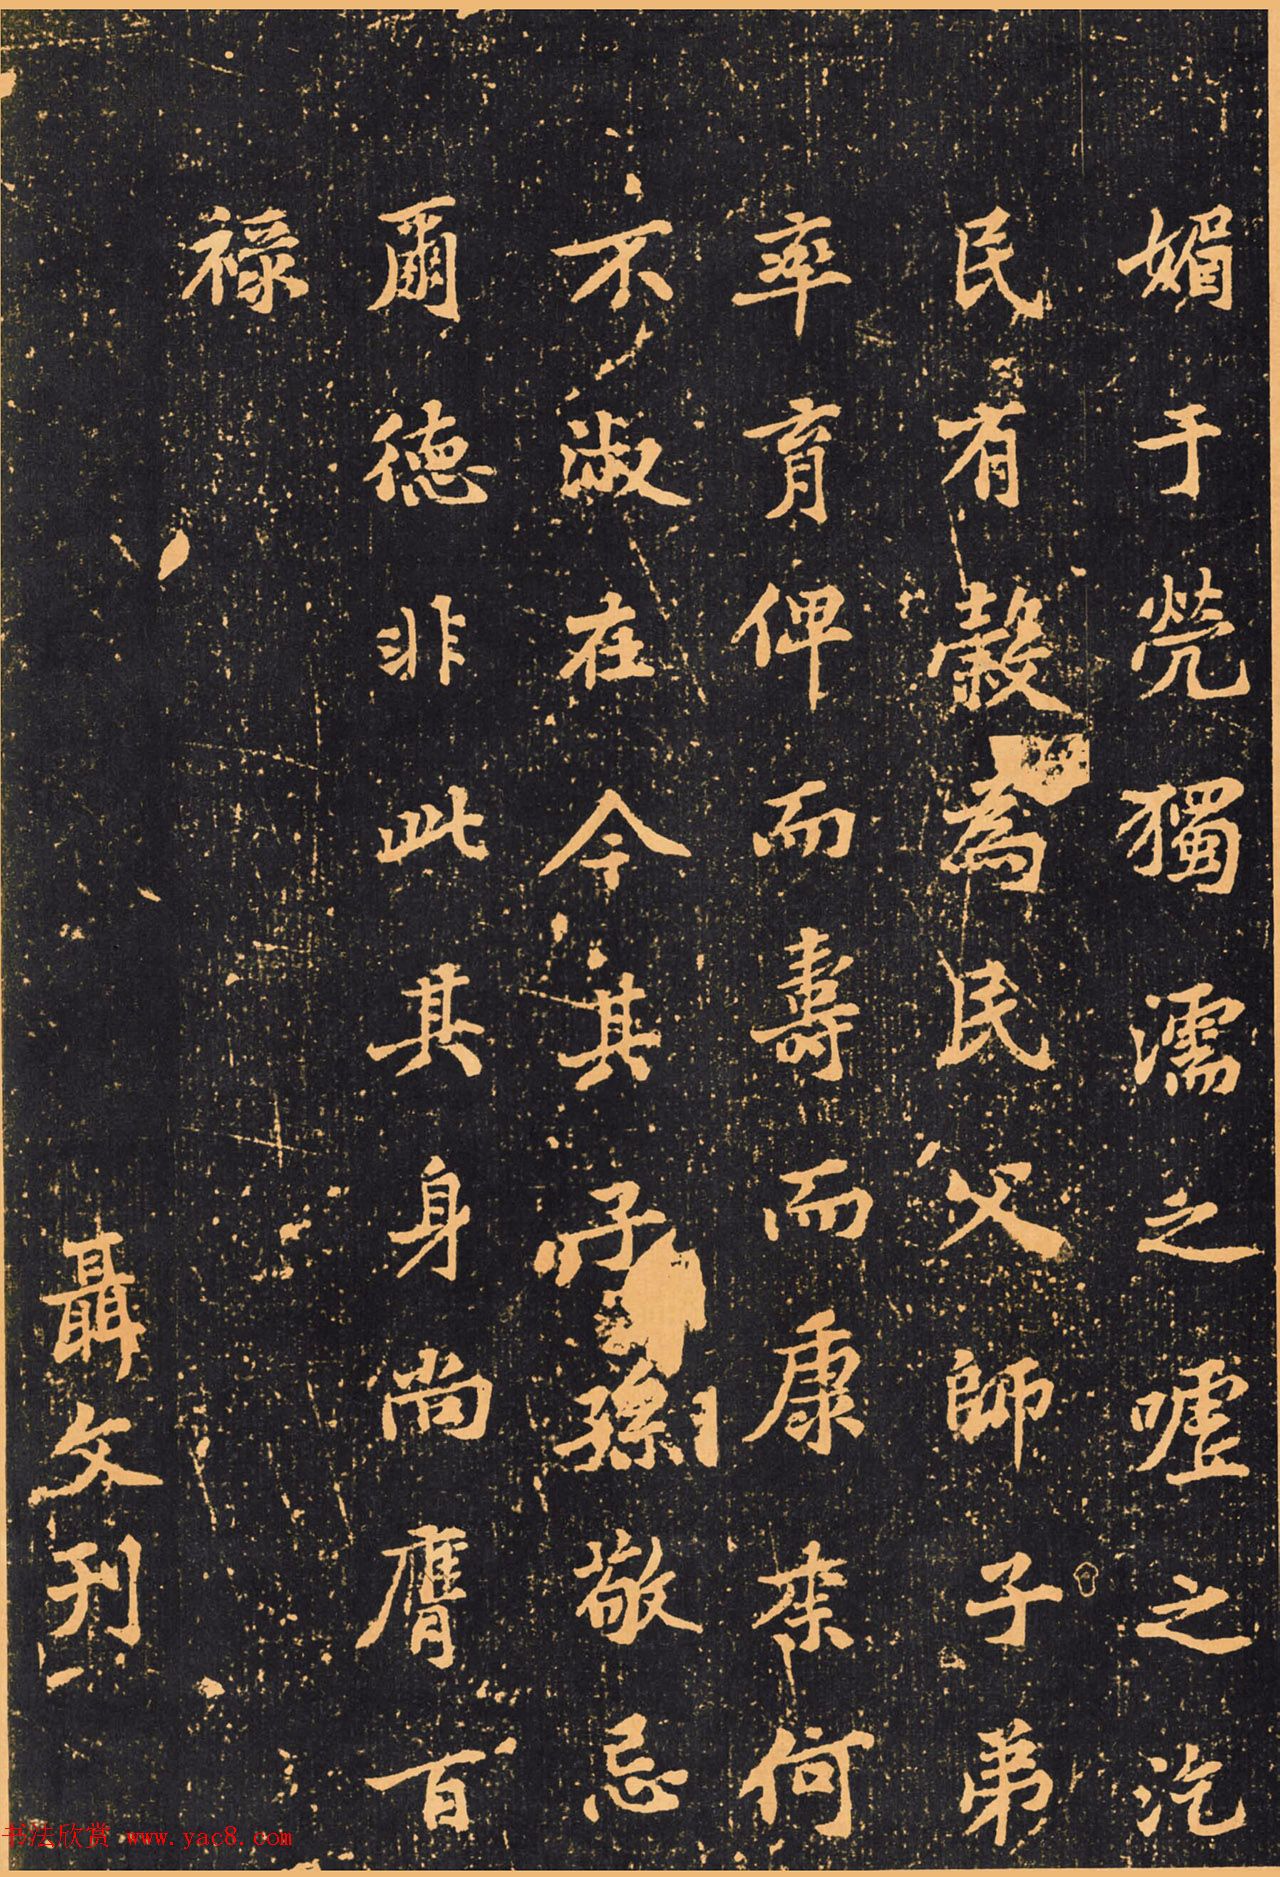 媚于煢獨濡之嘘之汔
民有穀為民父師子弟
率育俾而壽而康来何
不淑在今其子孫敬忌
爾德非此其身尚膺百
禄
聶文刊
书法欣赏 www.yac8.com